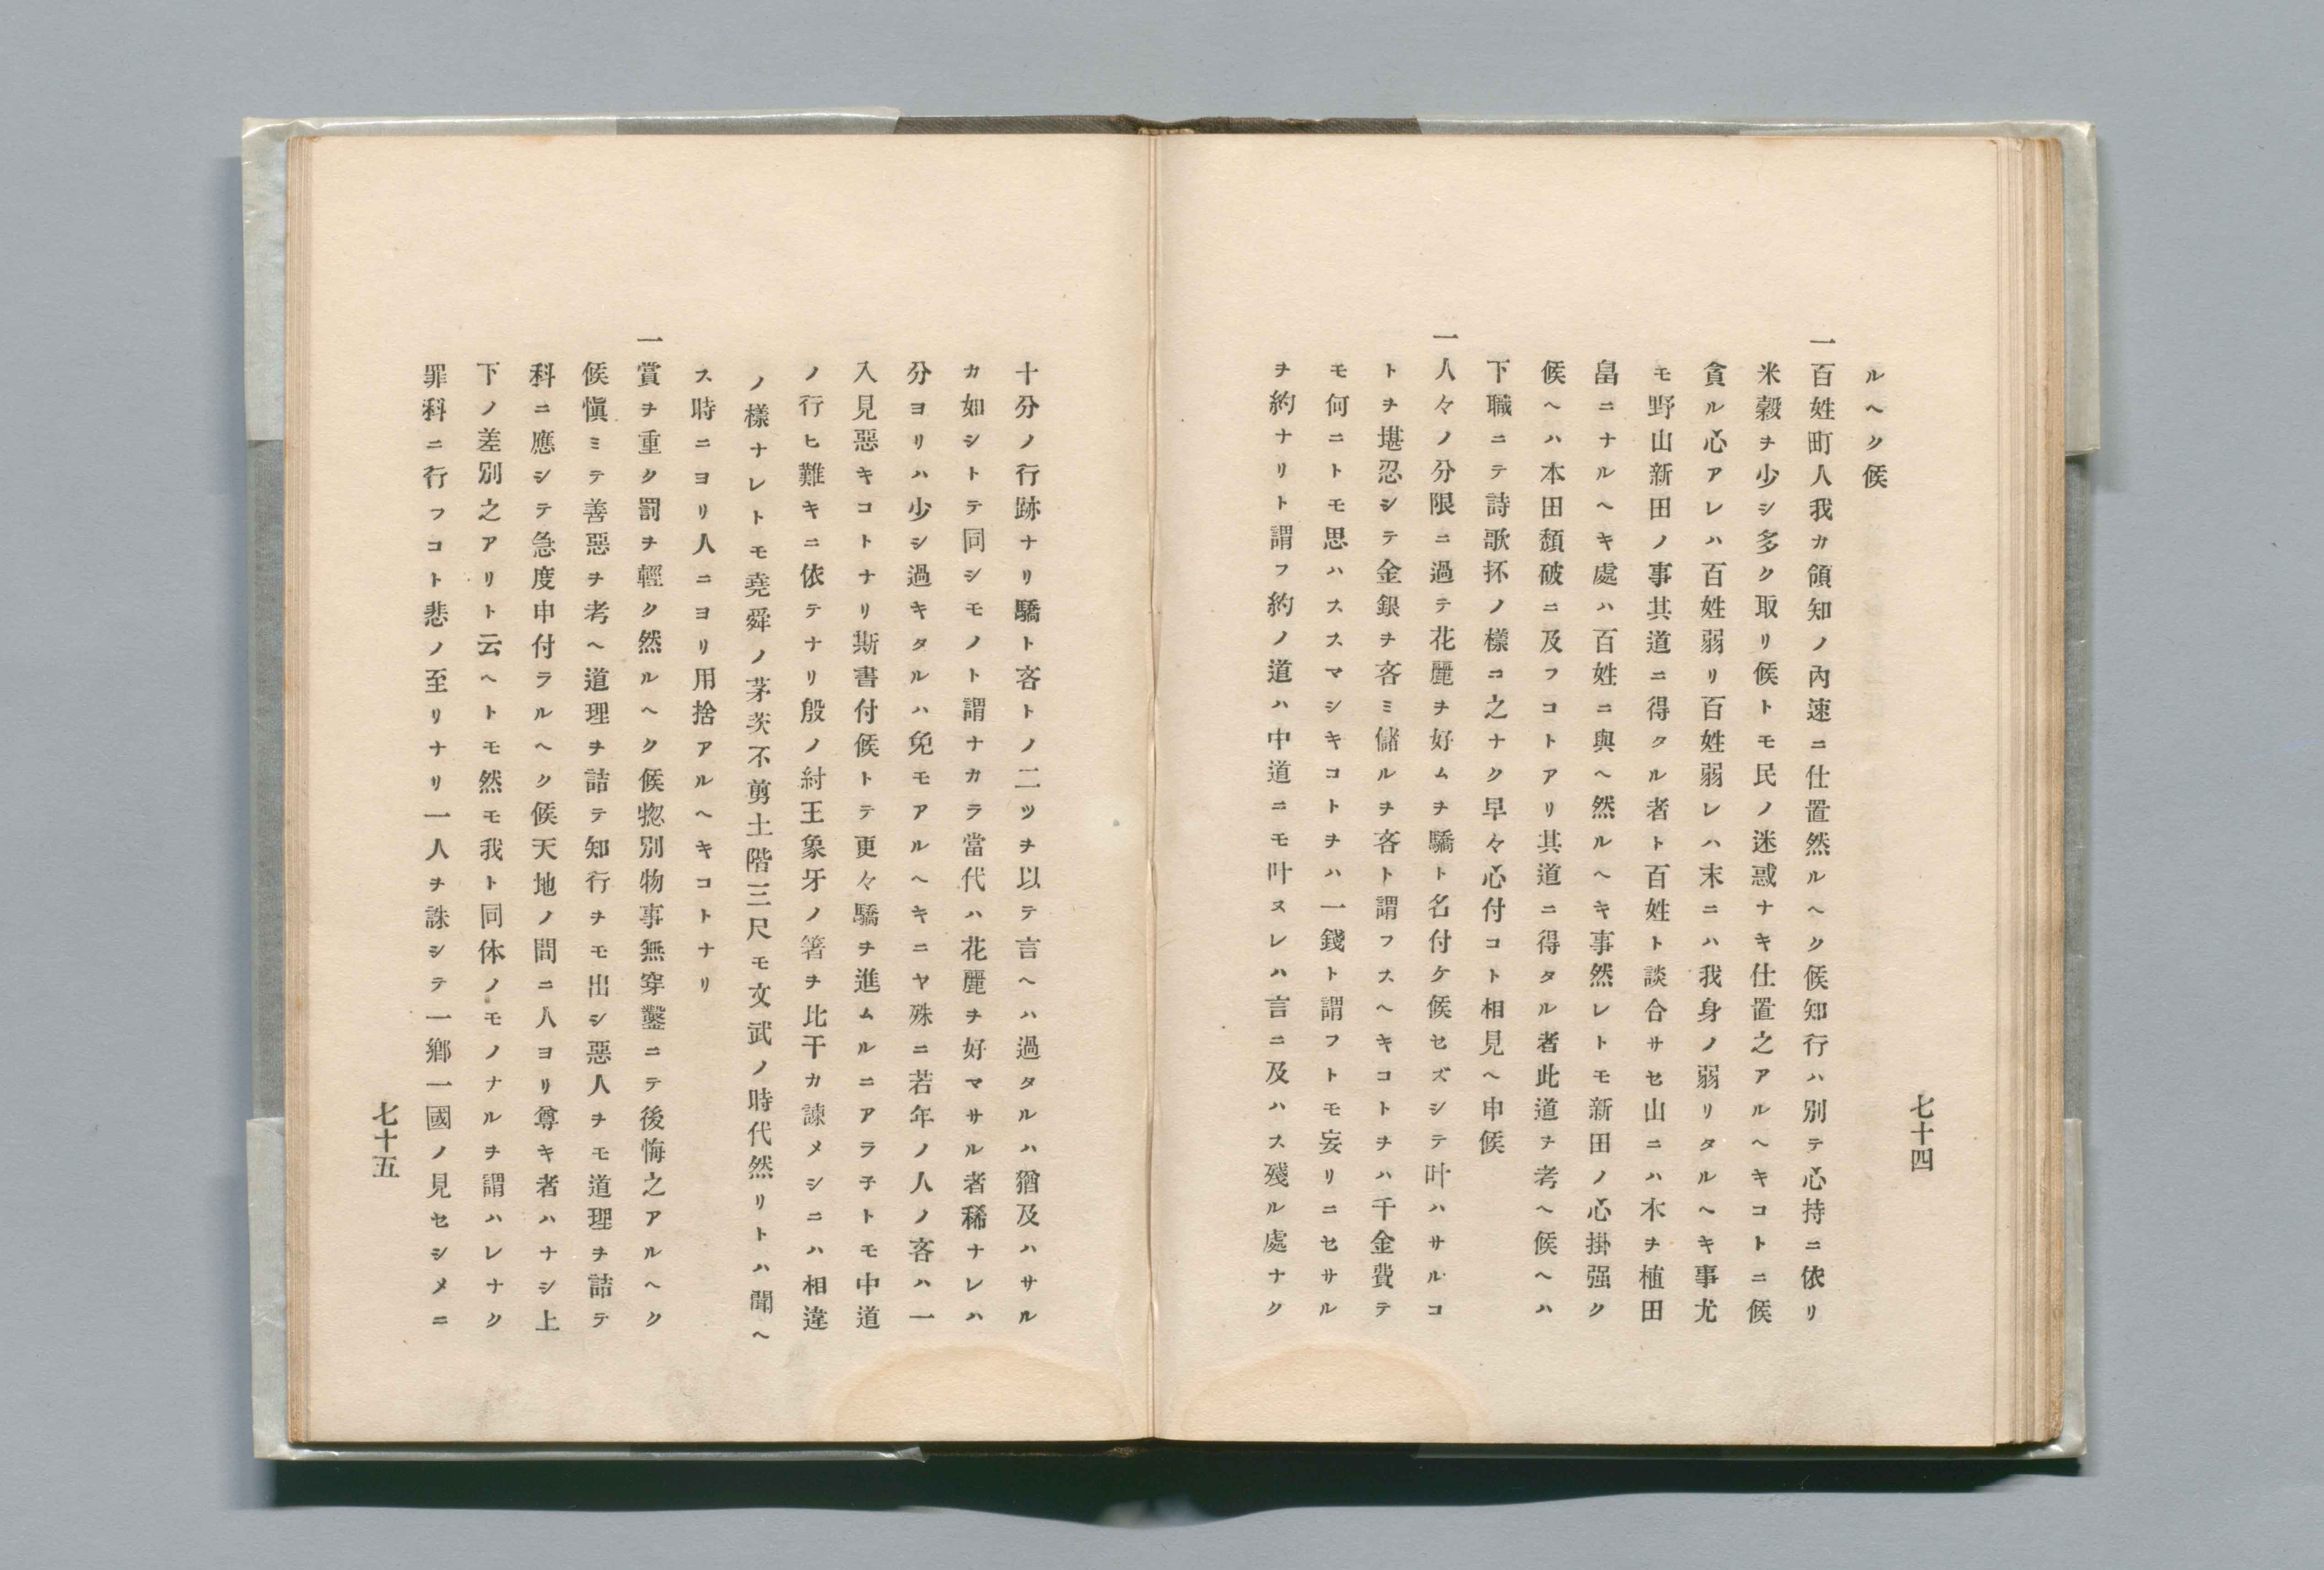 七十四
ルヘク候
一百姓町人我カ領知ノ內速ニ仕置然ルヘク候知行ハ別テ心持ニ依リ
米穀ヲ少シ多ク取リ候トモ民ノ迷惑ナキ仕置之アルヘキコトニ候
貪ル心アレハ百姓弱リ百姓弱レハ末ニハ我身ノ弱リタルヘキ事尤
モ野山新田ノ事其道ニ得タル者ト百姓ト談合サセ山ニハ木ヲ植田
畠ニナルヘキ處ハ百姓ニ與ヘ然ルヘキ事然レトモ新田ノ心掛强ク
候ヘハ本田頽破ニ及フコトアリ其道ニ得タル者此道ヲ考ヘ候ヘハ
下職ニテ詩歌抔ノ樣ニ之ナク早々心付コト相見ヘ申候
一人々ノ分限ニ過テ花麗ヲ好ムヲ驕ト名付ケ候セズシテ叶ハサルコ
トヲ堪忍シテ金銀ヲ吝ミ儲ルヲ吝ト謂フスヘキコトヲハ千金費テ
モ何ニトモ思ハススマシキコトヲハ一錢ト謂フトモ妄リニセサル
ヲ約ナリト謂フ約ノ道ハ中道ニモ叶ヌレハ言ニ及ハス殘ル處ナク
十分ノ行跡ナリ驕ト吝トノ二ツヲ以テ言ヘハ過タルハ猶及ハサル
カ如シトテ同シモノト謂ナカラ當代ハ花麗ヲ好マサル者稀ナレハ
分ヨリハ少シ過キタルハ免モアルヘキニヤ殊ニ若年ノ人ノ吝ハ一
入見惡キコトナリ斯書付候トテ更々驕ヲ進ムルニアラ子トモ中道
ノ行ヒ難キニ依テナリ殷ノ紂王象牙ノ箸ヲ比干カ諫メシニハ相違
ノ樣ナレトモ堯舜ノ茅茨不剪土階三尺モ文武ノ時代然リトハ聞ヘ
ス時ニヨリ人ニヨリ用捨アルヘキコトナリ
一賞ヲ重ク罰ヲ輕ク然ルヘク候惣別物事無穿鑿ニテ後悔之アルヘク
候愼ミテ善惡ヲ考ヘ道理ヲ詰テ知行ヲモ出シ惡人ヲモ道理ヲ詰テ
科ニ應シテ急度申付ラルヘク候天地ノ間ニ人ヨリ尊キ者ハナシ上
下ノ差別之アリト云ヘトモ然モ我ト同体ノモノナルヲ謂ハレナク
罪科ニ行フコト悲ノ至リナリ一人ヲ誅シテ一鄕一國ノ見セシメニ
七十五